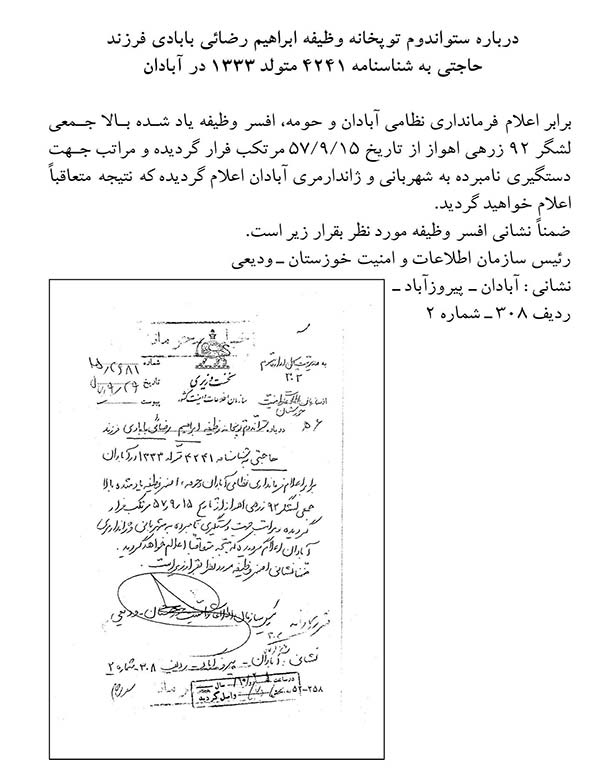 درباره ستواندوم توپخانه وظیفه ابراهیم رضائی بابادی فرزند
حاجتی به شناسنامه ۴۲۴۱ متولد ۱۳۳۳ در آبادان
برابر اعلام فرمانداری نظامی آبادان و حومه، افسر وظیفه یاد شده بالا جمعی
لشگر ۹۲ زرهی اهواز از تاریخ ۵۷/۹/۱۵ مرتکب فرار گردیده و مراتب جهت
دستگیری نامبرده به شهربانی و ژاندارمری آبادان اعلام گردیده که نتیجه متعاقباً
اعلام خواهید گردید.
ضمناً نشانی افسر وظیفه مورد نظر بقرار زیر است.
رئیس سازمان اطلاعات و امنیت خوزستان ـ ودیعی
نشانی : آبادان ـ پیروزآباد ـ
ردیف ۳۰۸ ـ شماره ۲
شماره
به مدیریت کل اداره سوم
۳۰۲
نخست وزیری
تاریخ
سازمان اطلاعات و امنیت کشور
پیوست
از سازمان اطلاعات و امنیت
خوزستان
درباره ستواندوم توپخانه وظیفه ابراهیم رضائی بابادی فرزند
حاجتی به شناسنامه ۴۲۴۱ متولد ۱۳۳۳ در آبادان
برابر اعلام فرمانداری نظامی آبادان و حومه، افسر وظیفه یاد شده بالا
جمعی لشگر ۹۲ زرهی اهواز از تاریخ ۵۷/۹/۱۵ مرتکب فرار
گردیده و مراتب جهت دستگیری نامبرده به شهربانی و ژاندارمری
آبادان اعلام گردیده که نتیجه متعاقباً اعلام خواهد گردید.
ضمناً نشانی افسر وظیفه مورد نظر بقرار زیر است.
رئیس سازمان اطلاعات و امنیت خوزستان ـ ودیعی
نشانی : آبادان ـ پیروزآباد ردیف ۳۰۸ ـ شماره ۲
در ساعت
سال
واصل گردید